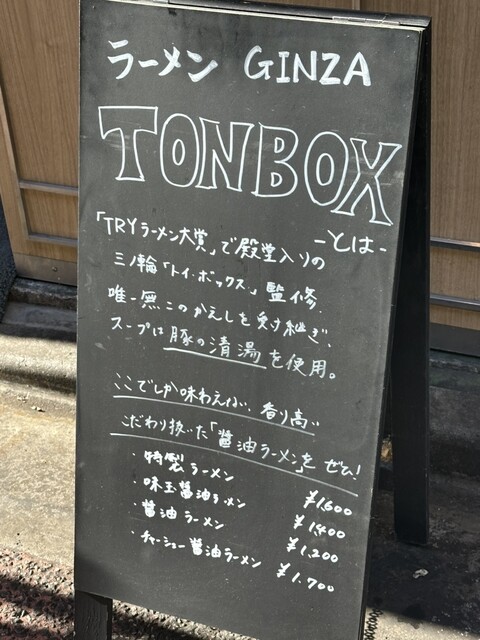 ラーメン GINZA
TONBOX
-とは-
「TRYラーメン大賞」で殿堂入りの
三ノ輪「トイ・ボックス」監修。
唯一無二のかえしを受け継ぎ、
スープは豚の清湯を使用。
ここでしか味わえない、香り高い
こだわり抜いた「醬油ラーメン」を ぜひ!
・特製ラーメン ¥1.600
・味玉醬油ラーメン ¥1.400
・醬油ラーメン ¥1.200
・チャーシュー醬油ラーメン ¥1.700